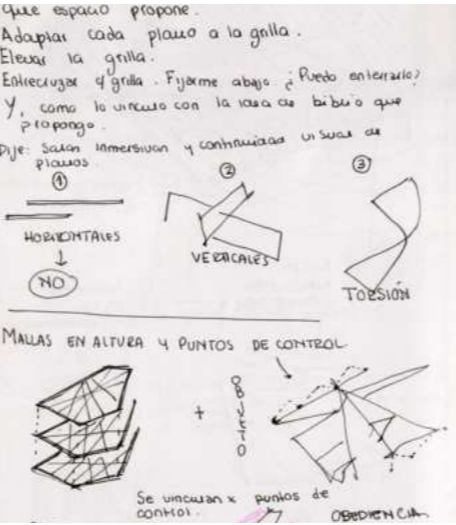 que espacio propone.
Adaptar cada plano a la grilla.
Elevar la grilla.
Entrecruzar y grilla. Fijarme abajo. ¿Puedo enterrarlo?
Y, como lo vinculo con la idea de biblio que
propongo.
Dije: Salas inmersivas y continuidad visual de
planos.
① ② ③
HORIZONTALES
VERTICALES
TORSIÓN
NO
MALLAS EN ALTURA Y PUNTOS DE CONTROL
+
OBJETO
Se vinculan x puntos de
control.
OBEDIENCIA